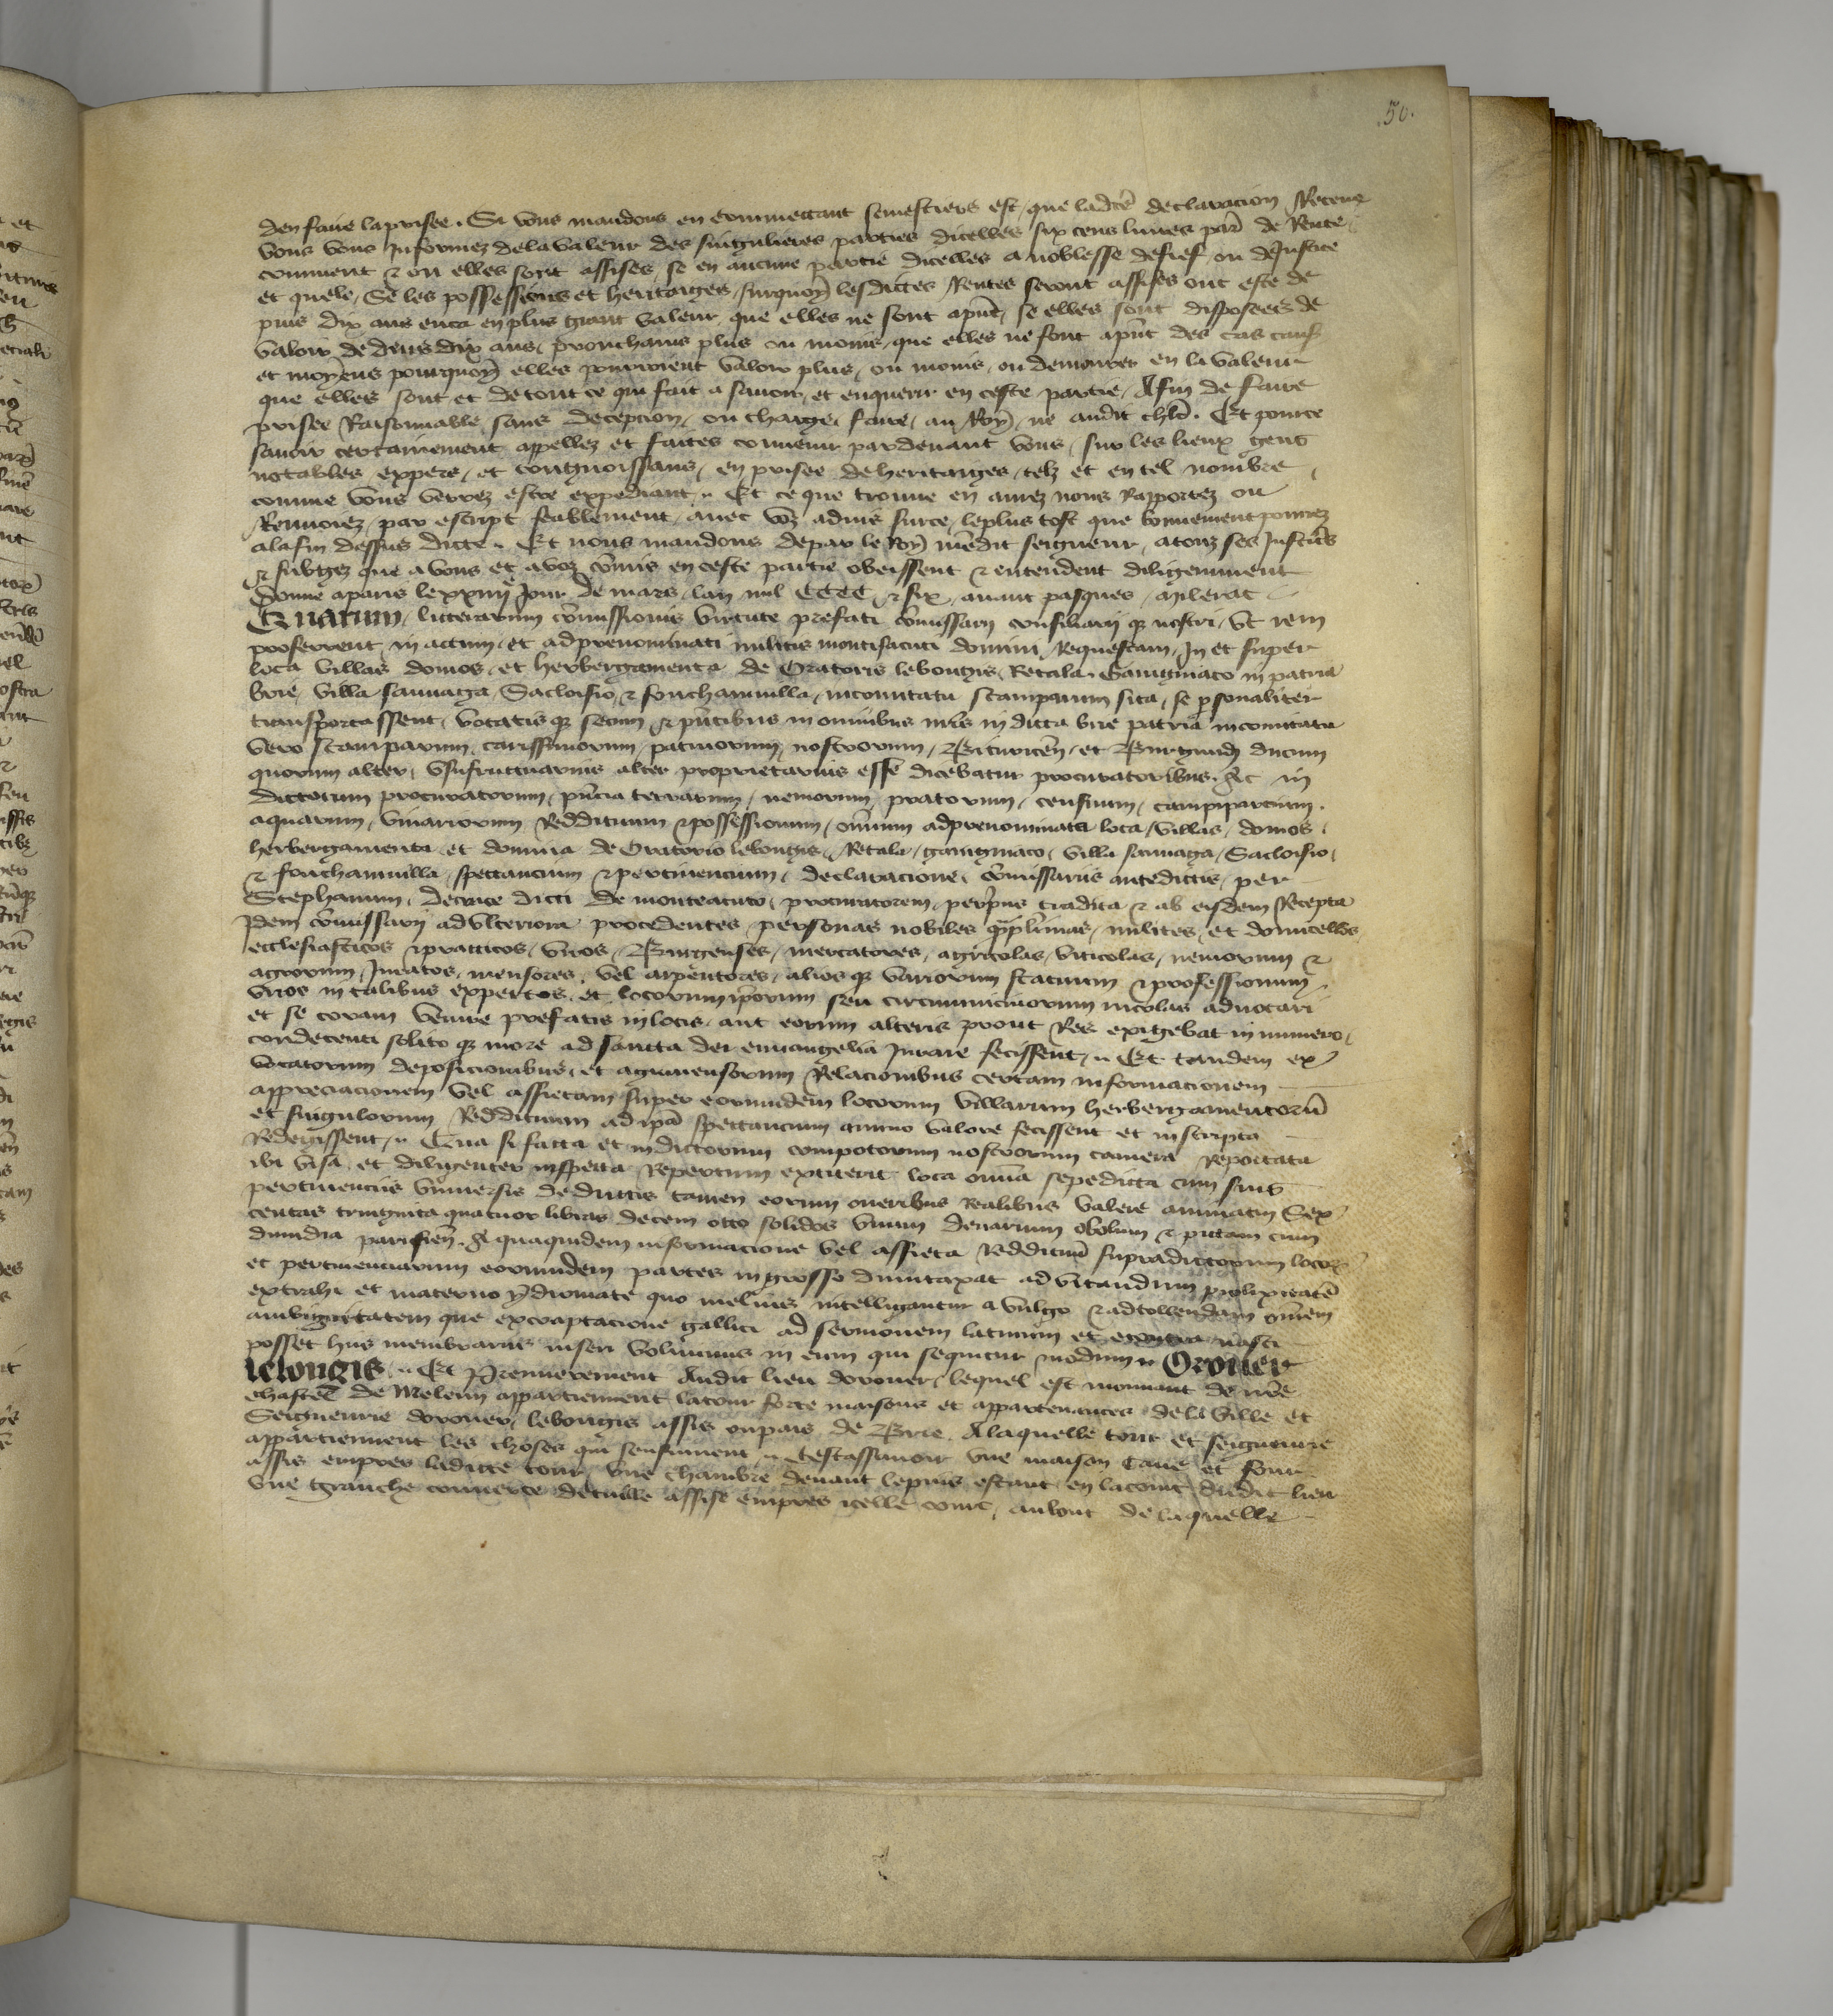 .50.
den faire la prisee. Si vous mandons en commettant se mestiers est, que ladicte declaracion Receue
vous vous Informez dela valeur des singulieres parties dicelles six cens livres par de Rente
comment & ou elles sont assises, se en aucune partie dicelles a noblesse de fief, ou de Justice
et quele, Se les possessions et heritaiges, surquoy lesdictes Rentes seront assises ont este de
puis dix ans enca en plus grant valeur, que elles ne sont apnt, se elles sont disposees de
valoir de dens dix ans, prouchains plus ou moins, que elles ne font apnt des cas caus
et moyens pourquoy elles pourroient valoir plus, ou moins, ou demourer en la valeur
que elles sont et de tout ce qui fait a savoir, et enquerir en ceste partie, Afin de faire
prisee Raisonnable, sans decepcion, ou charge, faire, au Roy, ne audit chlr. Et pource
savoir certainement appellez et faites convenir pardevant vous, sur les lieux gens
notables expers, et congnoissans, en prisee de heritaiges, telz et en tel nombre
comme vous verrez estre expediant. Et ce que trouve en aurez nous Rapportez ou
Renvoiez, par escript feablement, avec voz advis surce, le plus tost que bonnement pourrez
alafin dessus dicte. Et nous mandons depar le Roy nredit seigneur, atouz ses Justiciers
& subgez que a vous et a voz commis en ceste partie obeissent & entendent diligemment
Donne aparis le xxiiij.e Jour de mars, lan mil CCCC & six, avant pasques,
Quarum, litterarum commissionis virtute prefati commissarij consiliarij que nostri, Ut rem
proferrent, in actum, et adprenominati militis montisacuti domini, Requestam, In et super
loca villas domos, et herbergamenta de Oratoris lebougis, Retala, Ganigniaco in patria
brie, villa sauvaga, Sacloisio, & fonchainvilla, incomitatu stamparum sita, se personaliter
transportassent, vocatis que secum & pntibus in omnibus nris in dicta brie patria incomitatu
vero stamparum, carissimorum, patruorum, nostrorum, Bituricen, et Burgundie ducum
quorum alter, usufructuarius alter proprietarius esse dicebatur procuratoribus. Ac in
dictorum procuratorum, pncia terrarum, nemorum, pratorum, censuum, campipartium.
aquarum, vivariorum Reddituum & possessionum, omnium adprenominata loca, villas, domos,
herbergamenta et domina de Oratorio lebougis, Retala, ganigniaco, villa sauvaga, Sacloisio,
& fonchainvilla, spectancium & pertinencium, declaracione, commissariis antedictis, per
Stephanum, decrice dicti de monteacuto, procuratorem, perprius tradita & ab eisdem Recepta
Idem commissarij ad ulteriora procedentes personas nobiles quamplurimas, milites, et domicellos
ecclesiasticos & practicos, viros, Burgenses, mercatores, agricolas, viticolas, nemorum &
agrorum, Juratos, mensores, vel arpentores, alios que variorum statuum & professionum
viros in talibus expertos, et locorum ipsorum seu circumvicinorum incolas advocari
et se coram venire prefatis in locis, aut eorum alteris prout Res exigebat in numero,
condecenti solito que more ad sancta dei euvangelia Jurare fecissent. Et tandem ex
vocatorum deposicionibus, et agrimensorum Relacionibus certam informacionem
appreciacionem vel assietam super eorumdem locorum villarum herbergamentorum
et singulorum Reddituum ad ipsa spectancium annuo valore fecissent et inscripta
Redegissent. Qua si facta et in dictorum compotorum nostrorum camera Reportata
ibi visa, et diligenter inspecta Repertum extiterit loca omnia sepedicta cum suis
pertinenciis universis deductis tamen eorum oneribus Realibus valere annuatim Sex
centas triginta quatuor libras decem octo solidos unum denarium obolum & pictam cum
dimidia parisien. A quaquidem informacione vel assieta Reddituum supradictorum locorum
et pertinenciarum eorumdem partes in grosso dumtaxat ad vitandum prolixitatem
extrahi et materno ydiomate quo melius intelligantur a vulgo & adtollendam omnem
ambiguitatem que excaptacione gallici ad sermonem latinum et econtra nasci
posset hiis membranis inseri volumus in eum qui sequitur modum Orouer
lebougis. Et Premierement Audit lieu dorouer, lequel est mouvant de nre
chastel de Meleun appartiennent latour forte maisons et appartenances dela ville et
Seigneurie dorouer, lebougis assis oupais de Brie. Alaquelle tour et seigneurie
appartiennent les choses qui sensuivent. Cestassavoir une maison Cave et four
assis empres ladicte tour, Une chambre devant lepuis estant en lacourt dudit lieu
Une granche couverte detuille assise empres icelle court, aubout de laquelle